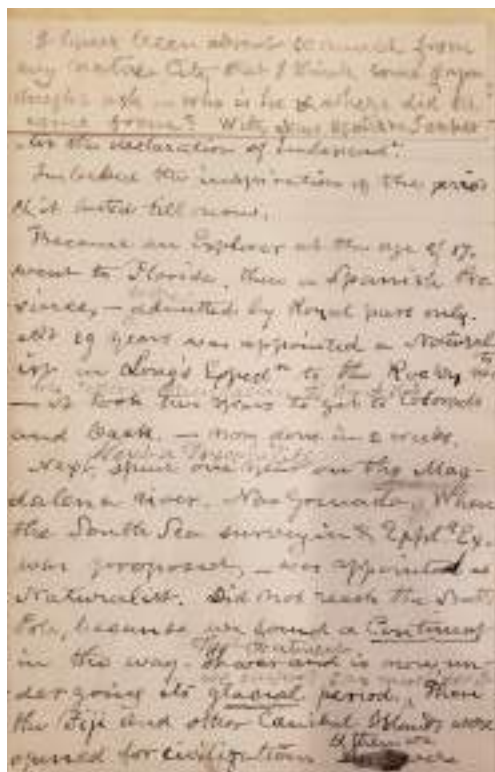 I have been absent so much from
my native City that I think some from
might ask – who is he & where did he
come from? With
to the declaration of independ^ce.
Imbibed the inspiration of the period
& it lasted till now.
Became an Explorer at the age of 17.
went to Florida, then a Spanish Pro
vince, – admitted by Royal pass only.
At 19 years was appointed a Natural
ist in Long's Exped^n to the Rocky Mts
– it took two years to get to Colorado
and back. – now done in a week.
Next, spent one year on the Mag-
dalena river. New Granada, When
the South Sea surveying & Expl^g Ex.
was proposed, – was appointed as
Naturalist. Did not reach the South
Pole, because we found a Continent
in the way. The Continent and is now un-
dergoing its glacial period. Then
the Fiji and other Canibal Islands were
opened for civilization